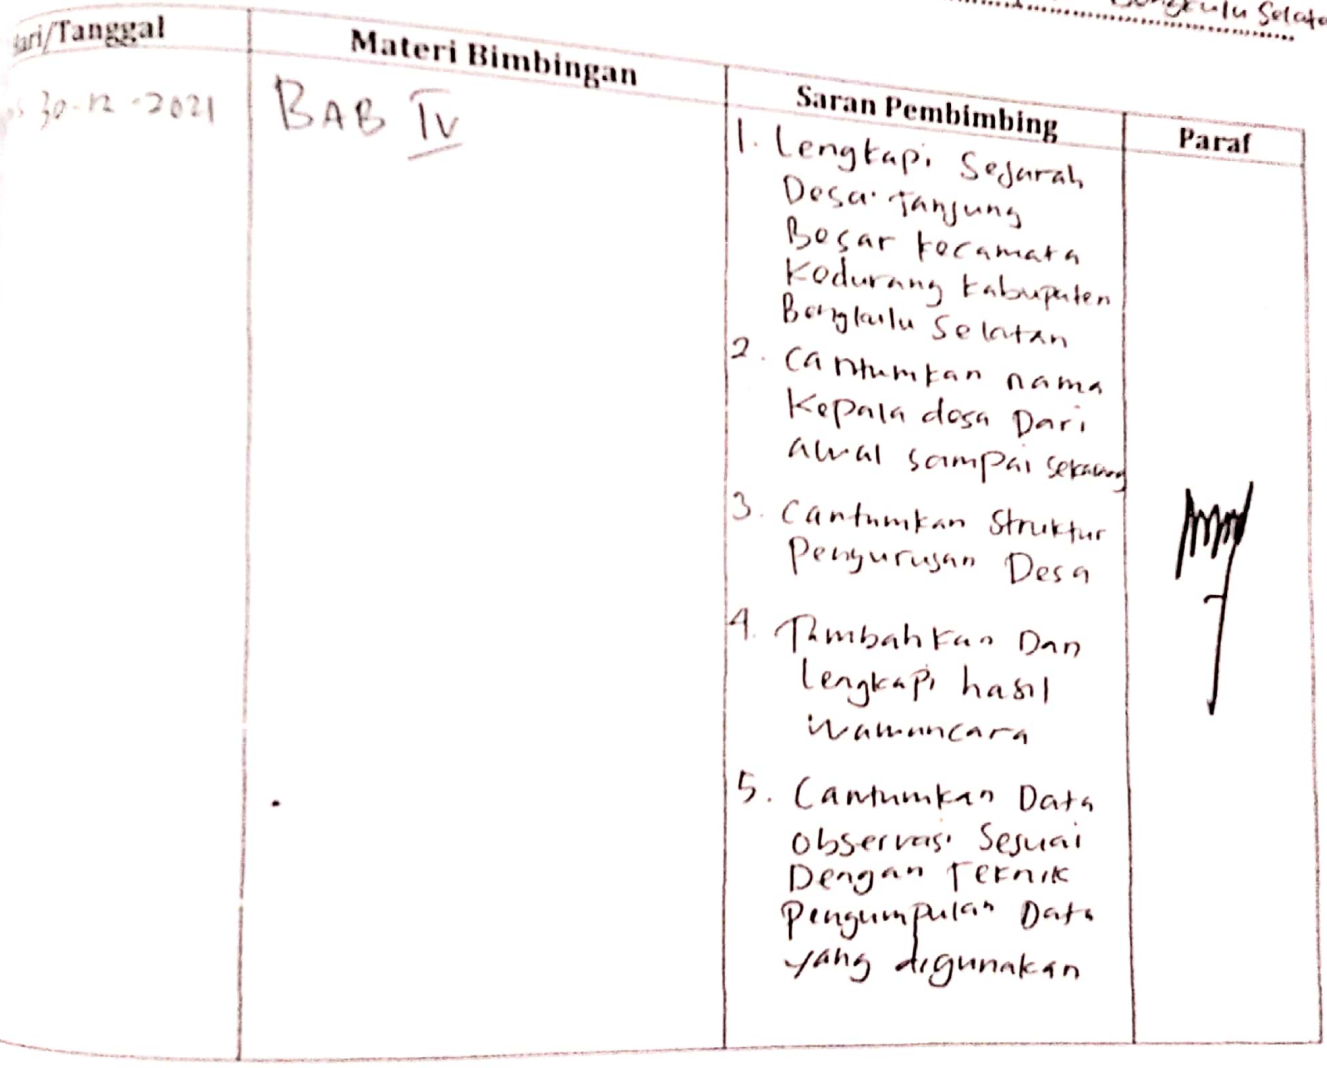 Bengkulu Selata
Hari/Tanggal
Materi Bimbingan
Saran Pembimbing
Paraf
30-12-2021
BAB IV
1. Lengkapi Sejarah
Desa Tanjung
Besar kecamata
Kedurang kabupaten
Bengkulu Selatan
2. Cantumkan nama
Kepala desa Dari
awal sampai sekarang
3. Cantumkan Struktur
Pengurusan Desa
4. Tambahkan Dan
lengkapi hasil
wawancara
5. Cantumkan Data
observasi Sesuai
Dengan Teknik
Pengumpulan Data
yang digunakan